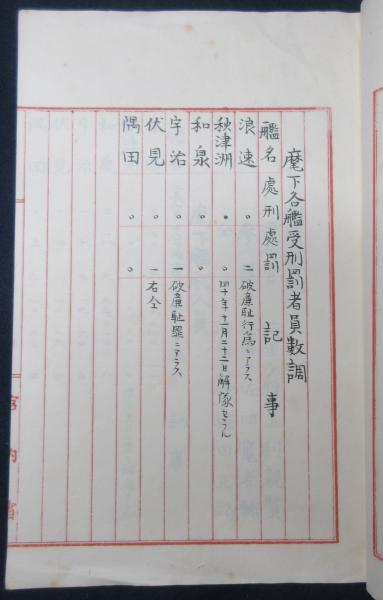 麾下各艦受刑罰者員數調
艦名 處刑 處罰 記事
浪速 〇 二 破廉耻行為ニアラス
秋津洲 〇 〇 四十年十一月二十二日解隊セラル
和泉 〇 〇
宇治 〇 一 破廉耻罪ニアラス
伏見 〇 一 右仝
隅田 〇 〇
宮内省